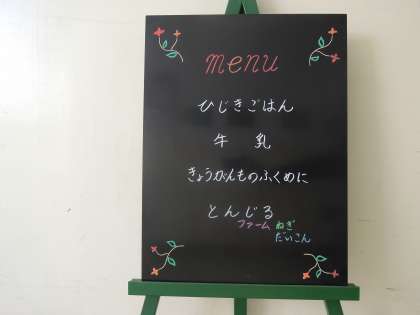 menu
ひじきごはん
牛乳
きょうがんものふくめに
とんじる
ファーム ねぎ
だいこん